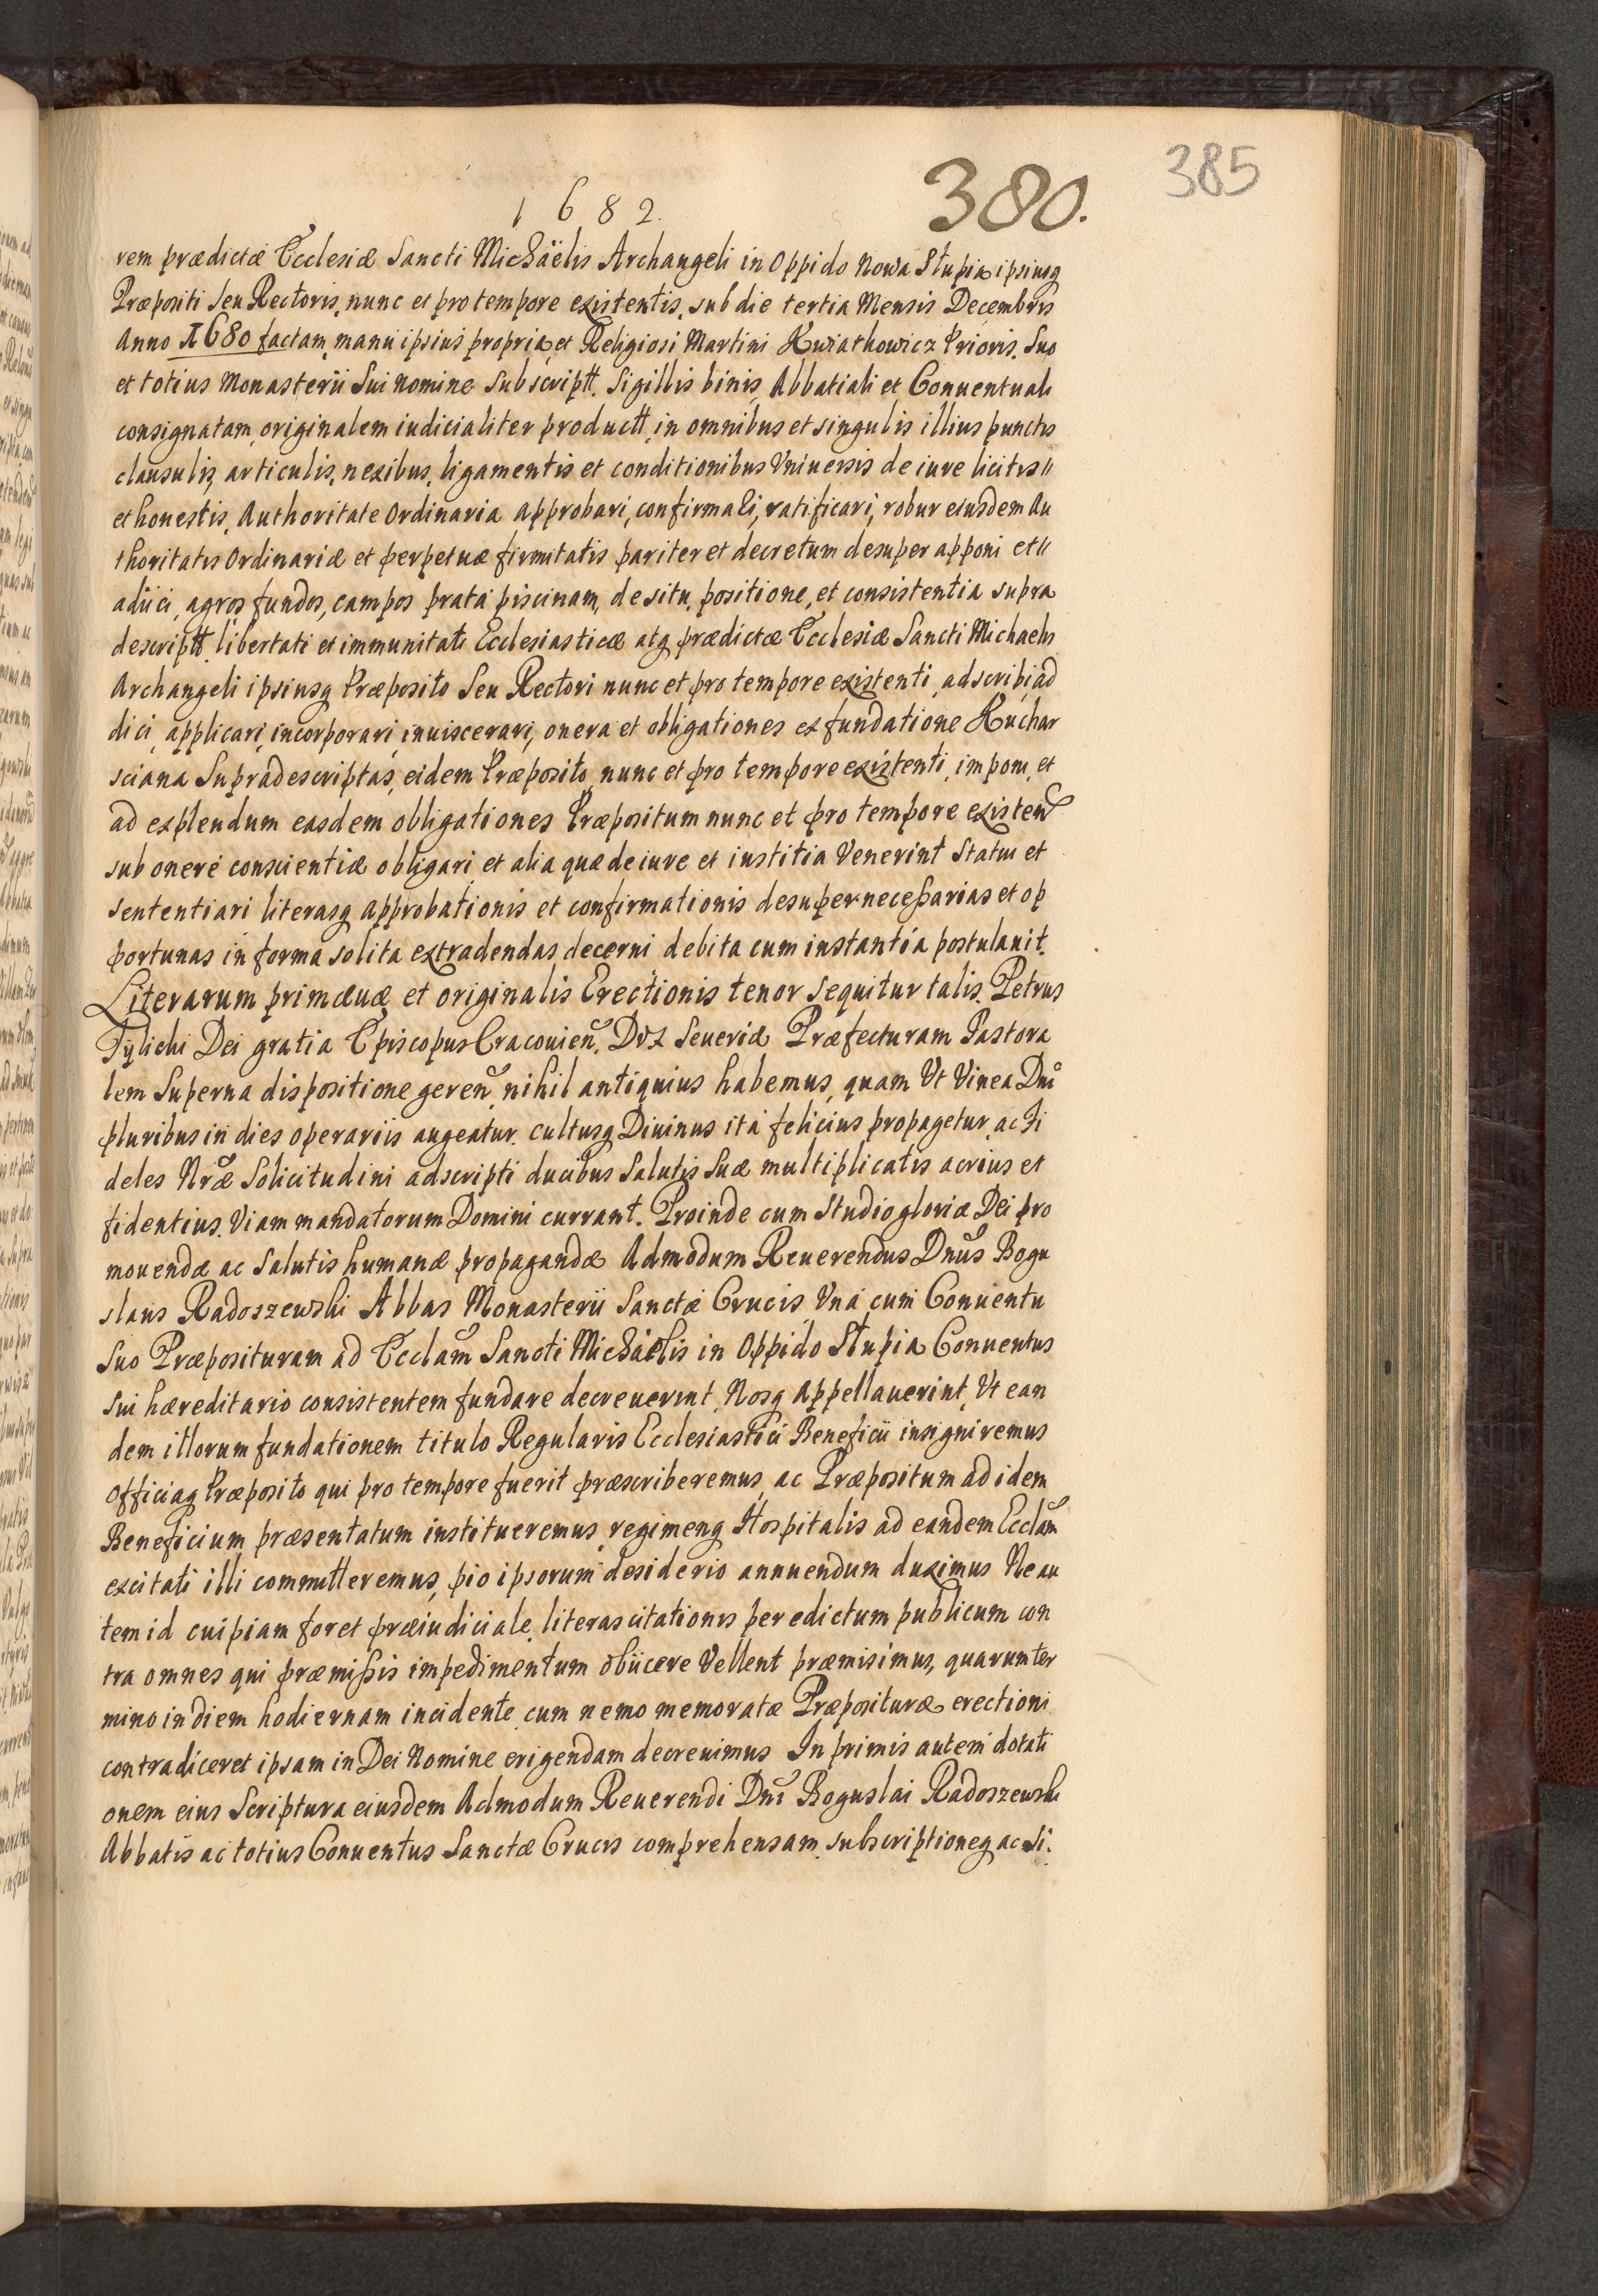 1682.
380.
385
rem prædictæ Ecclesiæ Sancti Michaëlis Archangeli in Oppido Nowa Stupia ipsiusq
Præpositi seu Rectoris, nunc et pro tempore existentis, sub die tertia Mensis Decembris
Anno 1680 factam, manu ipsius propria, et Religiosi Martini Kwiatkowicz Prioris, suo
et totius Monasterii sui nomine subscriptt. Sigillis binis, Abbatiali et Conuentuali
consignatam, originalem iudicialiter productt, in omnibus et singulis illius punctis
clausulis, articulis, nexibus, ligamentis et conditionibus Vniuersis de iure licitis〃
et honestis, Authoritate Ordinaria approbari, confirmari, ratificari, robur eiusdem Au
thoritatis Ordinariæ et perpetuæ firmitatis pariter et decretum desuper apponi et〃
adiici, agros, fundos, campos, prata, piscinam, de situ, positione, et consistentia supra
descriptt. libertati et immunitati Ecclesiasticæ atq prædictæ Ecclesiæ Sancti Michaelis
Archangeli ipsiusq Præposito seu Rectori nunc et pro tempore existenti, adscribi, ad
dici, applicari, incorporari, inuiscerari, onera et obligationes ex fundatione Kuchar
sciana supradescriptas, eidem Præposito, nunc et pro tempore existenti, imponi, et
ad explendum easdem obligationes Præpositum nunc et pro tempore existen
sub onere conscientiæ obligari, et alia quæ de iure et iustitia Venerint Statui et
sententiari literasq approbationis et confirmationis desuper necessarias et op
portunas in forma solita extradendas decerni debita cum instantia postulauit.
Literarum primæuæ et originalis Erectionis tenor sequitur talis. Petrus
Tÿlicki Dei gratia Episcopus Cracouien. Dux Seueriæ Præfecturam Pastora
lem Superna dispositione geren nihil antiquius habemus, quam Vt Vinea Dni
pluribus in dies operariis augeatur, cultusq Diuinus ita felicius propagetur, ac fi
deles Nræ Solicitudini adscripti ducibus salutis suæ multiplicatis acrius et
fidentius Viam mandatorum Domini currant. Proinde cum Studio gloriæ Dei pro
mouendæ ac salutis humanæ propagandæ Admodum Reuerendus Dnus Bogu
slaus Radoszewski Abbas Monasterii Sanctæ Crucis, Vna cum Conuentu
suo Præposituram ad Ecclam Sancti Michaelis in Oppido Stupia Conuentus
sui hæreditario consistentem fundare decreuerint, Nosq Appellauerint, Vt ean
dem illorum fundationem titulo Regularis Ecclesiastici Beneficii insigniremus
officiaq Præposito qui pro tempore fuerit præscriberemus, ac Præpositum ad idem
Beneficium præsentatum institueremus, regimenq Hospitalis ad eandem Ecclam
excitati illi committeremus, pio ipsorum desiderio annuendum duximus Ne au
tem id cuipiam foret præiudiciale, literas citationis per edictum publicum con
tra omnes qui præmissis impedimentum obiicere Vellent præmisimus, quarum ter
mino in diem hodiernam incidente, cum nemo memoratæ Præposituræ erectioni
contradiceret ipsam in Dei Nomine erigendam decreuimus In primis autem dotati
onem eius Scriptura eiusdem Admodum Reuerendi Dni Boguslai Radoszewski
Abbatis ac totius Conuentus Sanctæ Crucis comprehensam, subscriptioneq ac si.